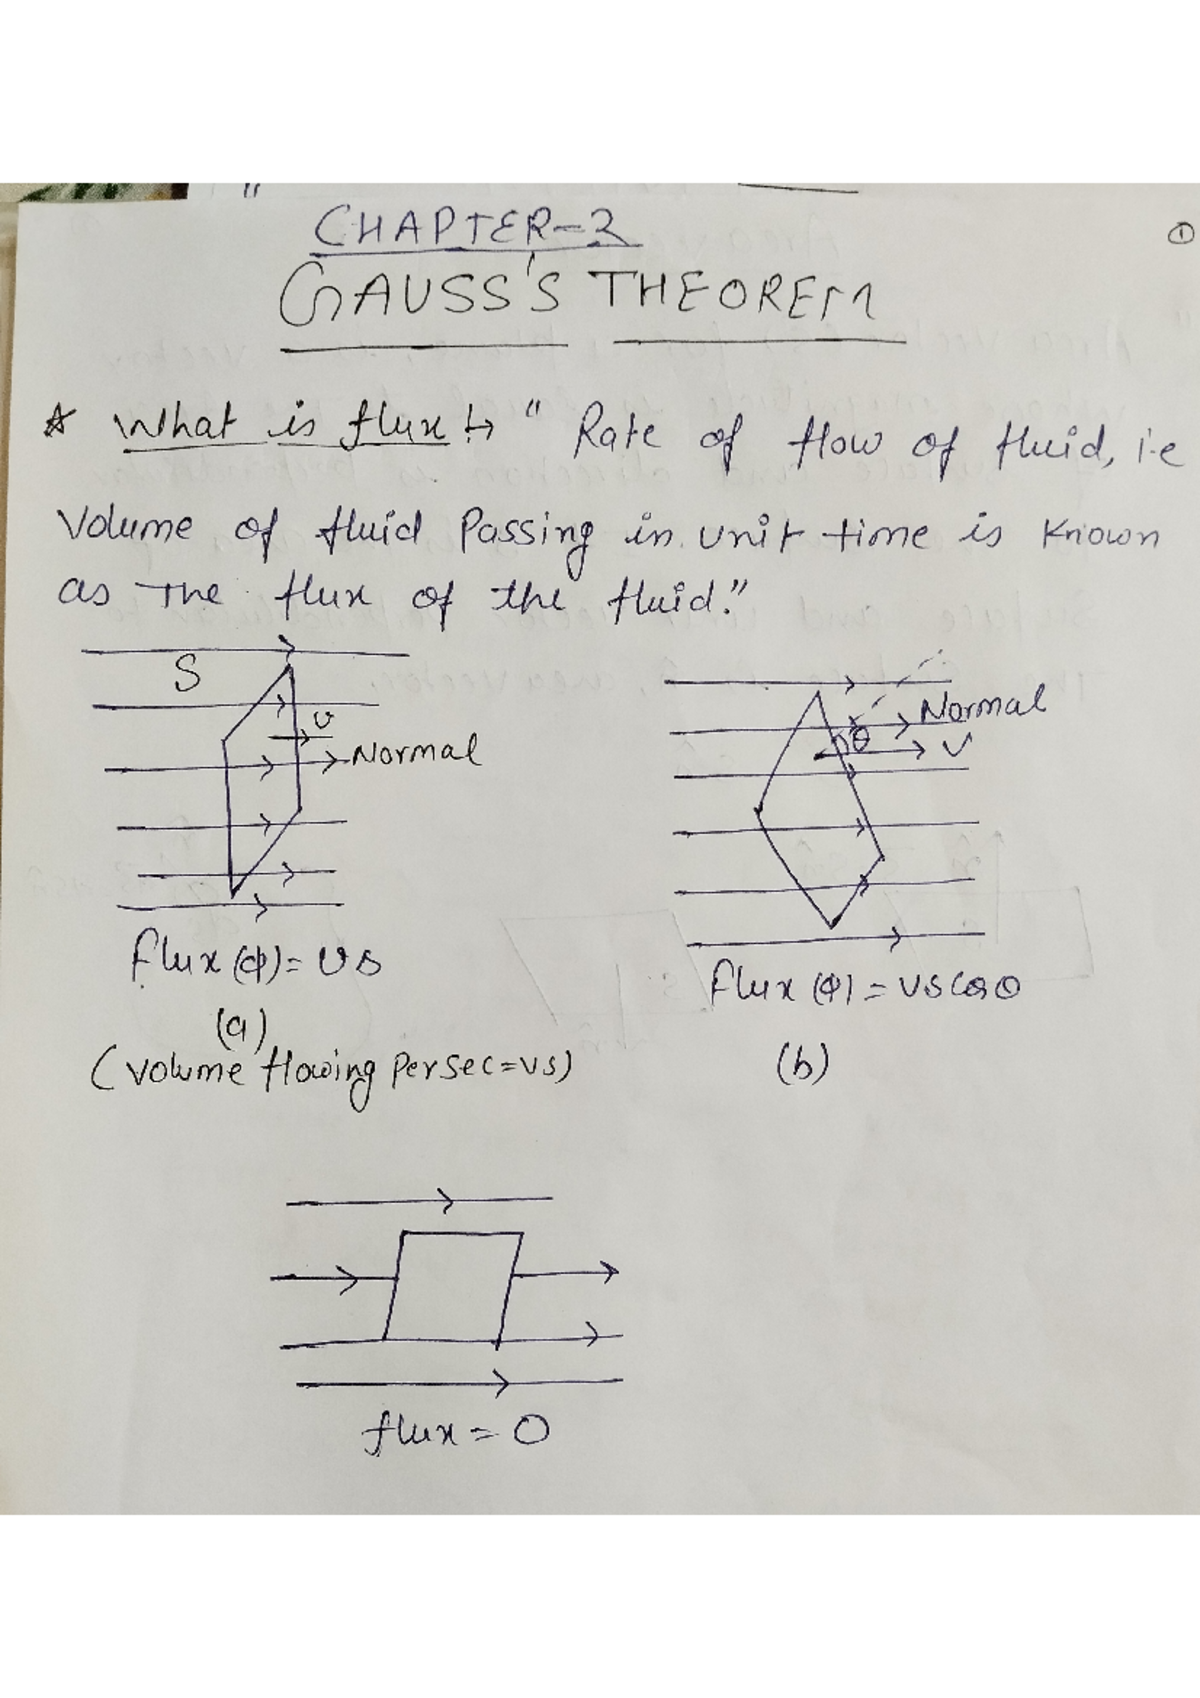 CHAPTER-2
①
GAUSS'S THEOREM
☆ What is flux !↳ " Rate of flow of fluid, i.e
Volume of fluid Passing in unit time is Known
as The flux of the fluid."
S
v
Normal
Normal
θ
v
flux (φ) = vs
flux (φ) = vs cosθ
(a)
(Volume flowing per sec = vs)
(b)
flux = 0